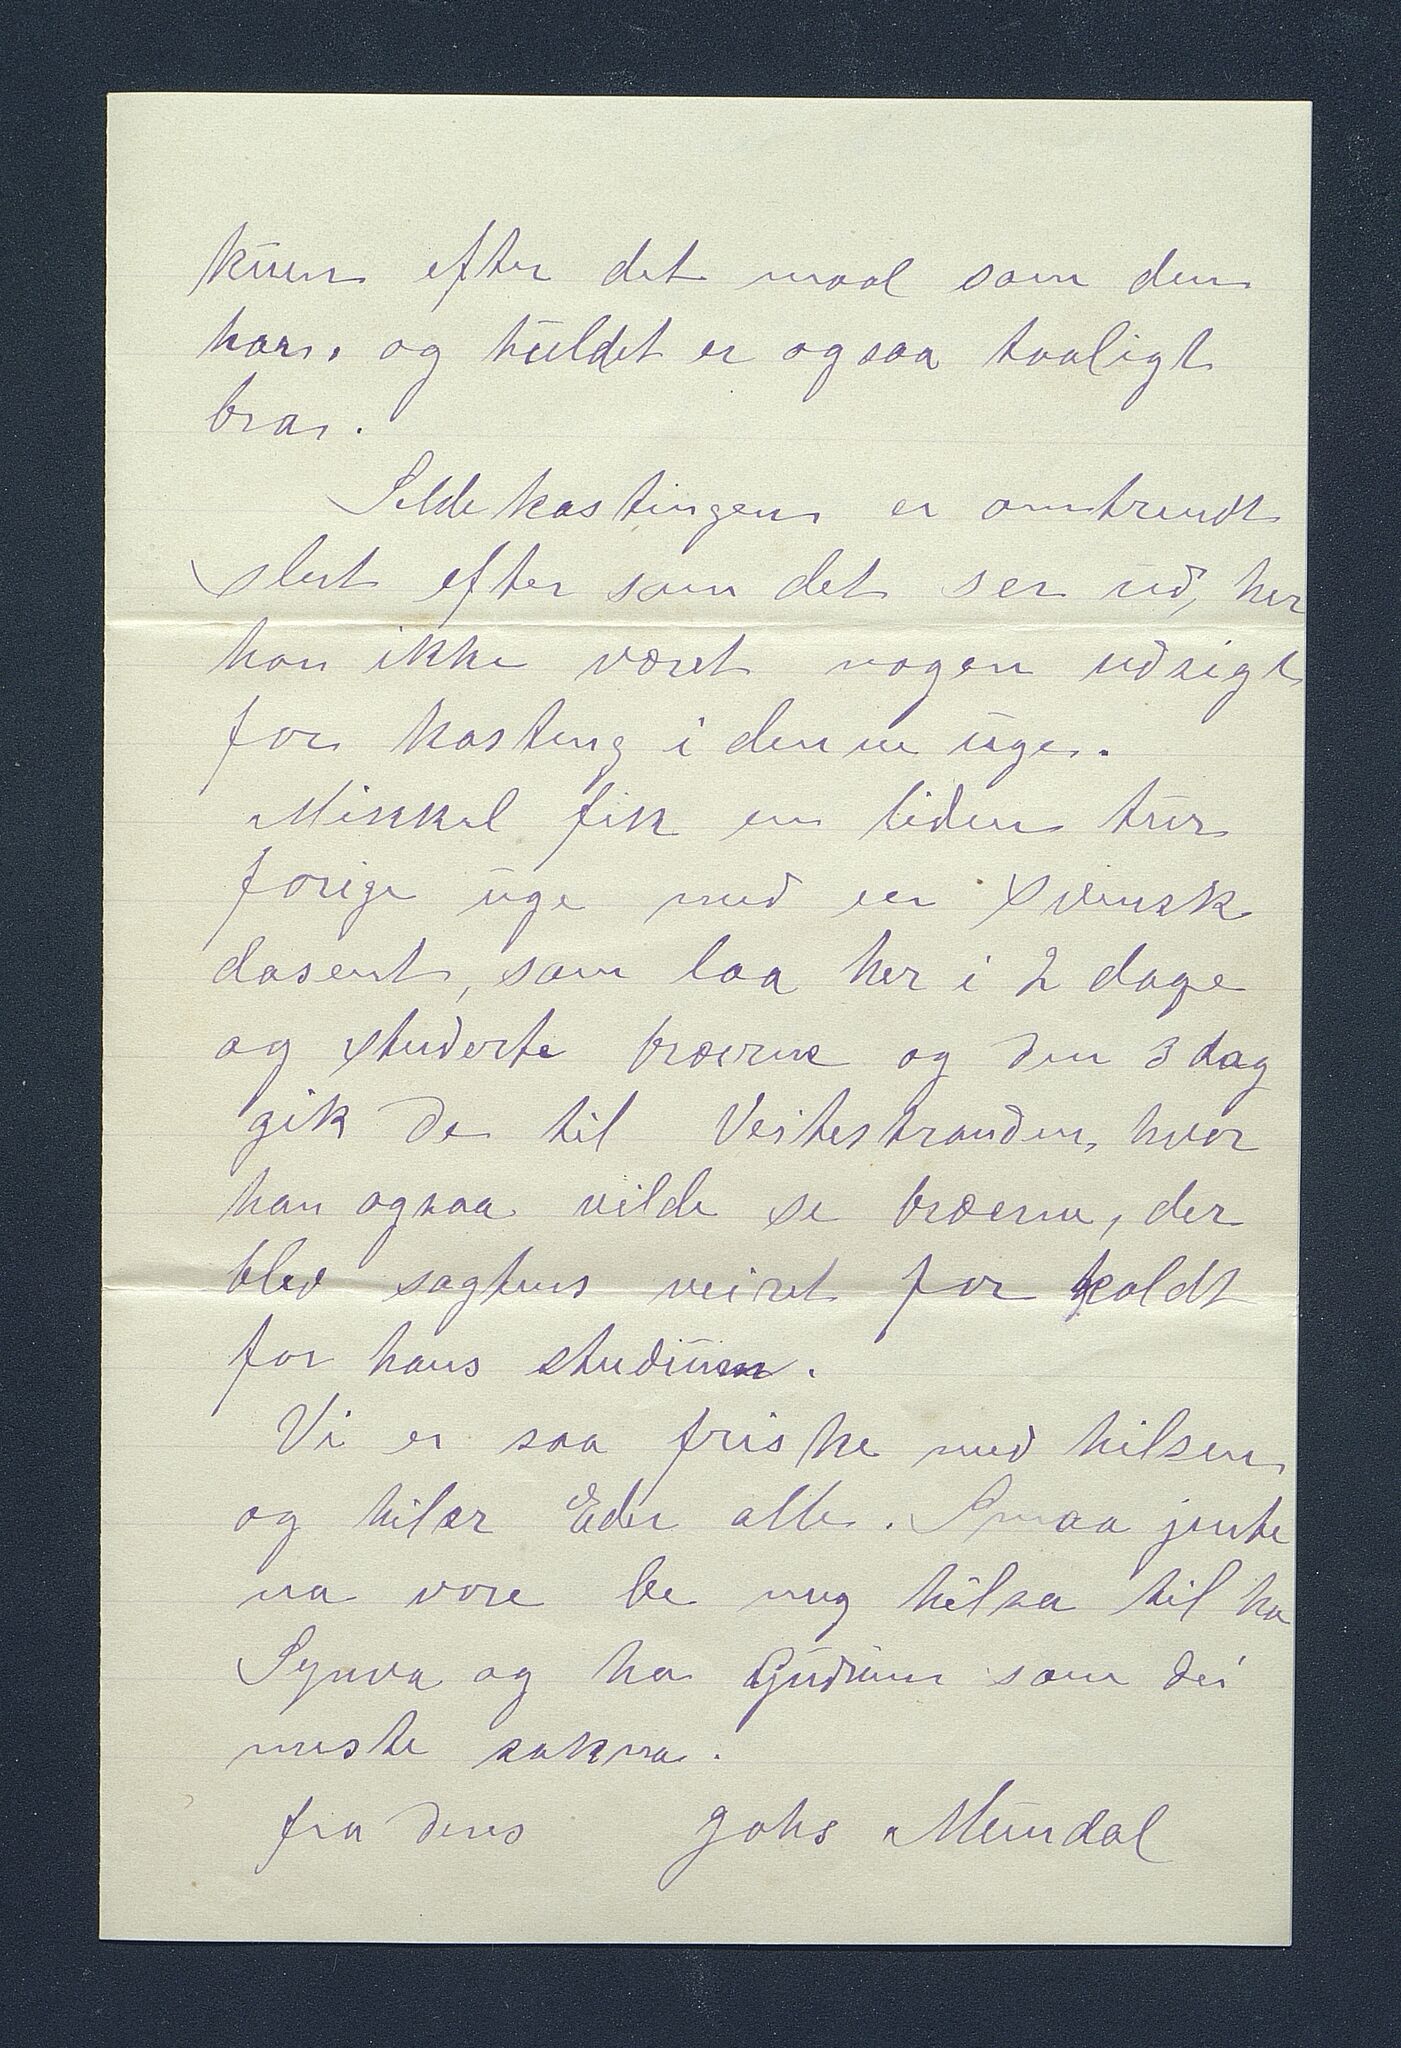 kuen efter det maal som den
har. og huldet er ogsaa taaligt
bra.
Sildekastingen er omtrendt
slut efter som det ser ud, her
har ikke været nogen udsigt
for kasting i denne uge.
Mikkel fik en liden tur
forige uge med en svensk
dosent, som laa her i 2 dage
og studerte bræerne og den 3 dag
gik de til Veitestranden, hvor
han ogsaa vilde se bræerne, der
blev sagtens veiret for koldt
for hans studium.
Vi er saa friske med hilsen
og hilser Eder alle. Smaa jente
na vore be meg hilsa til ho
Synva og ho Gudrun som dei
meste sakna.
fra deres Johs Mundal